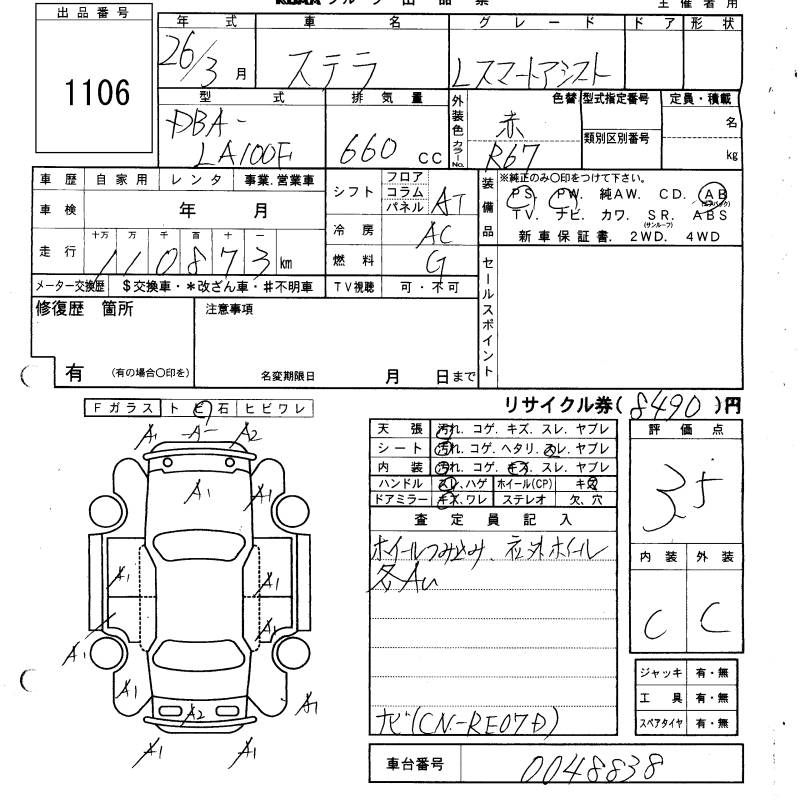 出品番号
1106
主催者用
年式 車名 グレード ドア 形状
26/3月 ステラ Lスマートアシスト
型式 排気量 外装色 色替 型式指定番号 定員・積載
DBA-
LA100F 660 cc 赤 類別区別番号 名
カラーNo. R67 kg
車歴 自家用 レンタ 事業.営業車
車検 年 月
走行 十万 万 千 百 十 一
110873 km
メーター交換歴 $交換車・*改ざん車・#不明車
シフト フロア コラム パネル AT
冷房 AC
燃料 G
TV視聴 可・不可
装備品 ※純正のみ〇印をつけて下さい。
PS. PW. 純AW. CD. AB(エアバック)
TV. ナビ. カワ. SR.(サンルーフ) ABS
新車保証書. 2WD. 4WD
セールスポイント
修復歴 箇所
有 (有の場合〇印を)
注意事項
名変期限日 月 日まで
リサイクル券(8490)円
Fガラス トビ石 ヒビワレ
A1 -A- A2
A1
A1 A1
A1 A1
A1
A1
A1 A1
A2
A1 A1
天張 汚れ. コゲ. キズ. スレ. ヤブレ
シート 汚れ. コゲ. ヘタリ. スレ. ヤブレ
内装 汚れ. コゲ. キズ. スレ. ヤブレ
ハンドル スレ. ハゲ ホイール(CP) キズ
ドアミラー キズ. ワレ ステレオ 欠、穴
査定員記入
ホイールつみ込み、社外ホイール
冬Au
ナビ(CN-RE07D)
評価点
3.5
内装 外装
C C
ジャッキ 有・無
工具 有・無
スペアタイヤ 有・無
車台番号 0048838